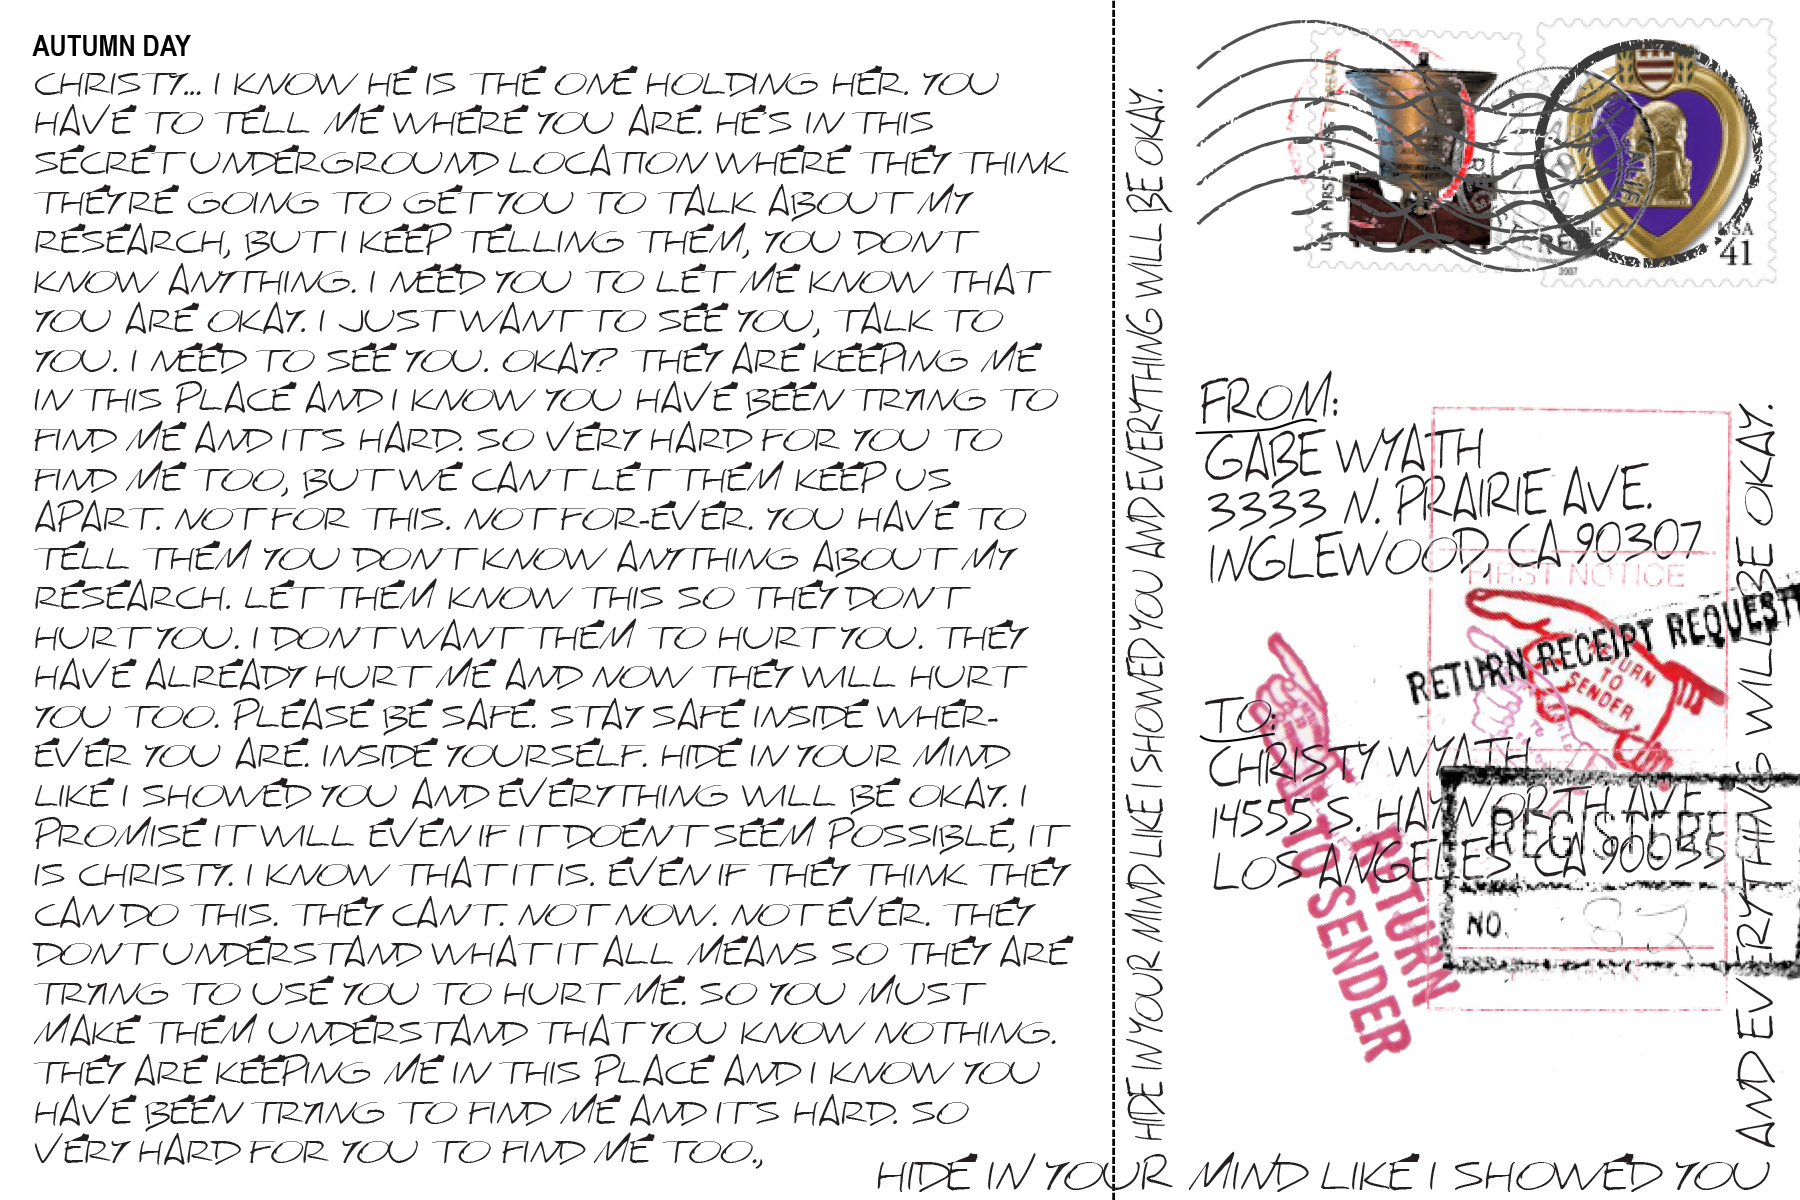 AUTUMN DAY
CHRISTY... I KNOW HE IS THE ONE HOLDING HER. YOU
HAVE TO TELL ME WHERE YOU ARE. HE'S IN THIS
SECRET UNDERGROUND LOCATION WHERE THEY THINK
THEY'RE GOING TO GET YOU TO TALK ABOUT MY
RESEARCH, BUT I KEEP TELLING THEM, YOU DON'T
KNOW ANYTHING. I NEED YOU TO LET ME KNOW THAT
YOU ARE OKAY. I JUST WANT TO SEE YOU, TALK TO
YOU. I NEED TO SEE YOU. OKAY? THEY ARE KEEPING ME
IN THIS PLACE AND I KNOW YOU HAVE BEEN TRYING TO
FIND ME AND IT'S HARD. SO VERY HARD FOR YOU TO
FIND ME TOO, BUT WE CAN'T LET THEM KEEP US
APART. NOT FOR THIS. NOT FOR-EVER. YOU HAVE TO
TELL THEM YOU DON'T KNOW ANYTHING ABOUT MY
RESEARCH. LET THEM KNOW THIS SO THEY DON'T
HURT YOU. I DON'T WANT THEM TO HURT YOU. THEY
HAVE ALREADY HURT ME AND NOW THEY WILL HURT
YOU TOO. PLEASE BE SAFE. STAY SAFE INSIDE WHER-
EVER YOU ARE. INSIDE YOURSELF. HIDE IN YOUR MIND
LIKE I SHOWED YOU AND EVERYTHING WILL BE OKAY. I
PROMISE IT WILL EVEN IF IT DOEN'T SEEM POSSIBLE, IT
IS CHRISTY. I KNOW THAT IT IS. EVEN IF THEY THINK THEY
CAN DO THIS. THEY CAN'T. NOT NOW. NOT EVER. THEY
DON'T UNDERSTAND WHAT IT ALL MEANS SO THEY ARE
TRYING TO USE YOU TO HURT ME. SO YOU MUST
MAKE THEM UNDERSTAND THAT YOU KNOW NOTHING.
THEY ARE KEEPING ME IN THIS PLACE AND I KNOW YOU
HAVE BEEN TRYING TO FIND ME AND IT'S HARD. SO
VERY HARD FOR YOU TO FIND ME TOO.,
HIDE IN YOUR MIND LIKE I SHOWED YOU AND EVERYTHING WILL BE OKAY.
USA FIRST-CLASS FOREVER
USA
41
2007
FROM:
GABE WYATH
3333 N. PRAIRIE AVE.
INGLEWOOD, CA 90307
FIRST NOTICE
RETURN RECEIPT REQUEST
RETURN
TO
SENDER
TO:
CHRISTY WYATH
14555 S. HAYNORTH AVE
LOS ANGELES, CA 90035
REGISTERED
NO.
RETURN
TO SENDER
HIDE IN YOUR MIND LIKE I SHOWED YOU
AND EVERYTHING WILL BE OKAY.